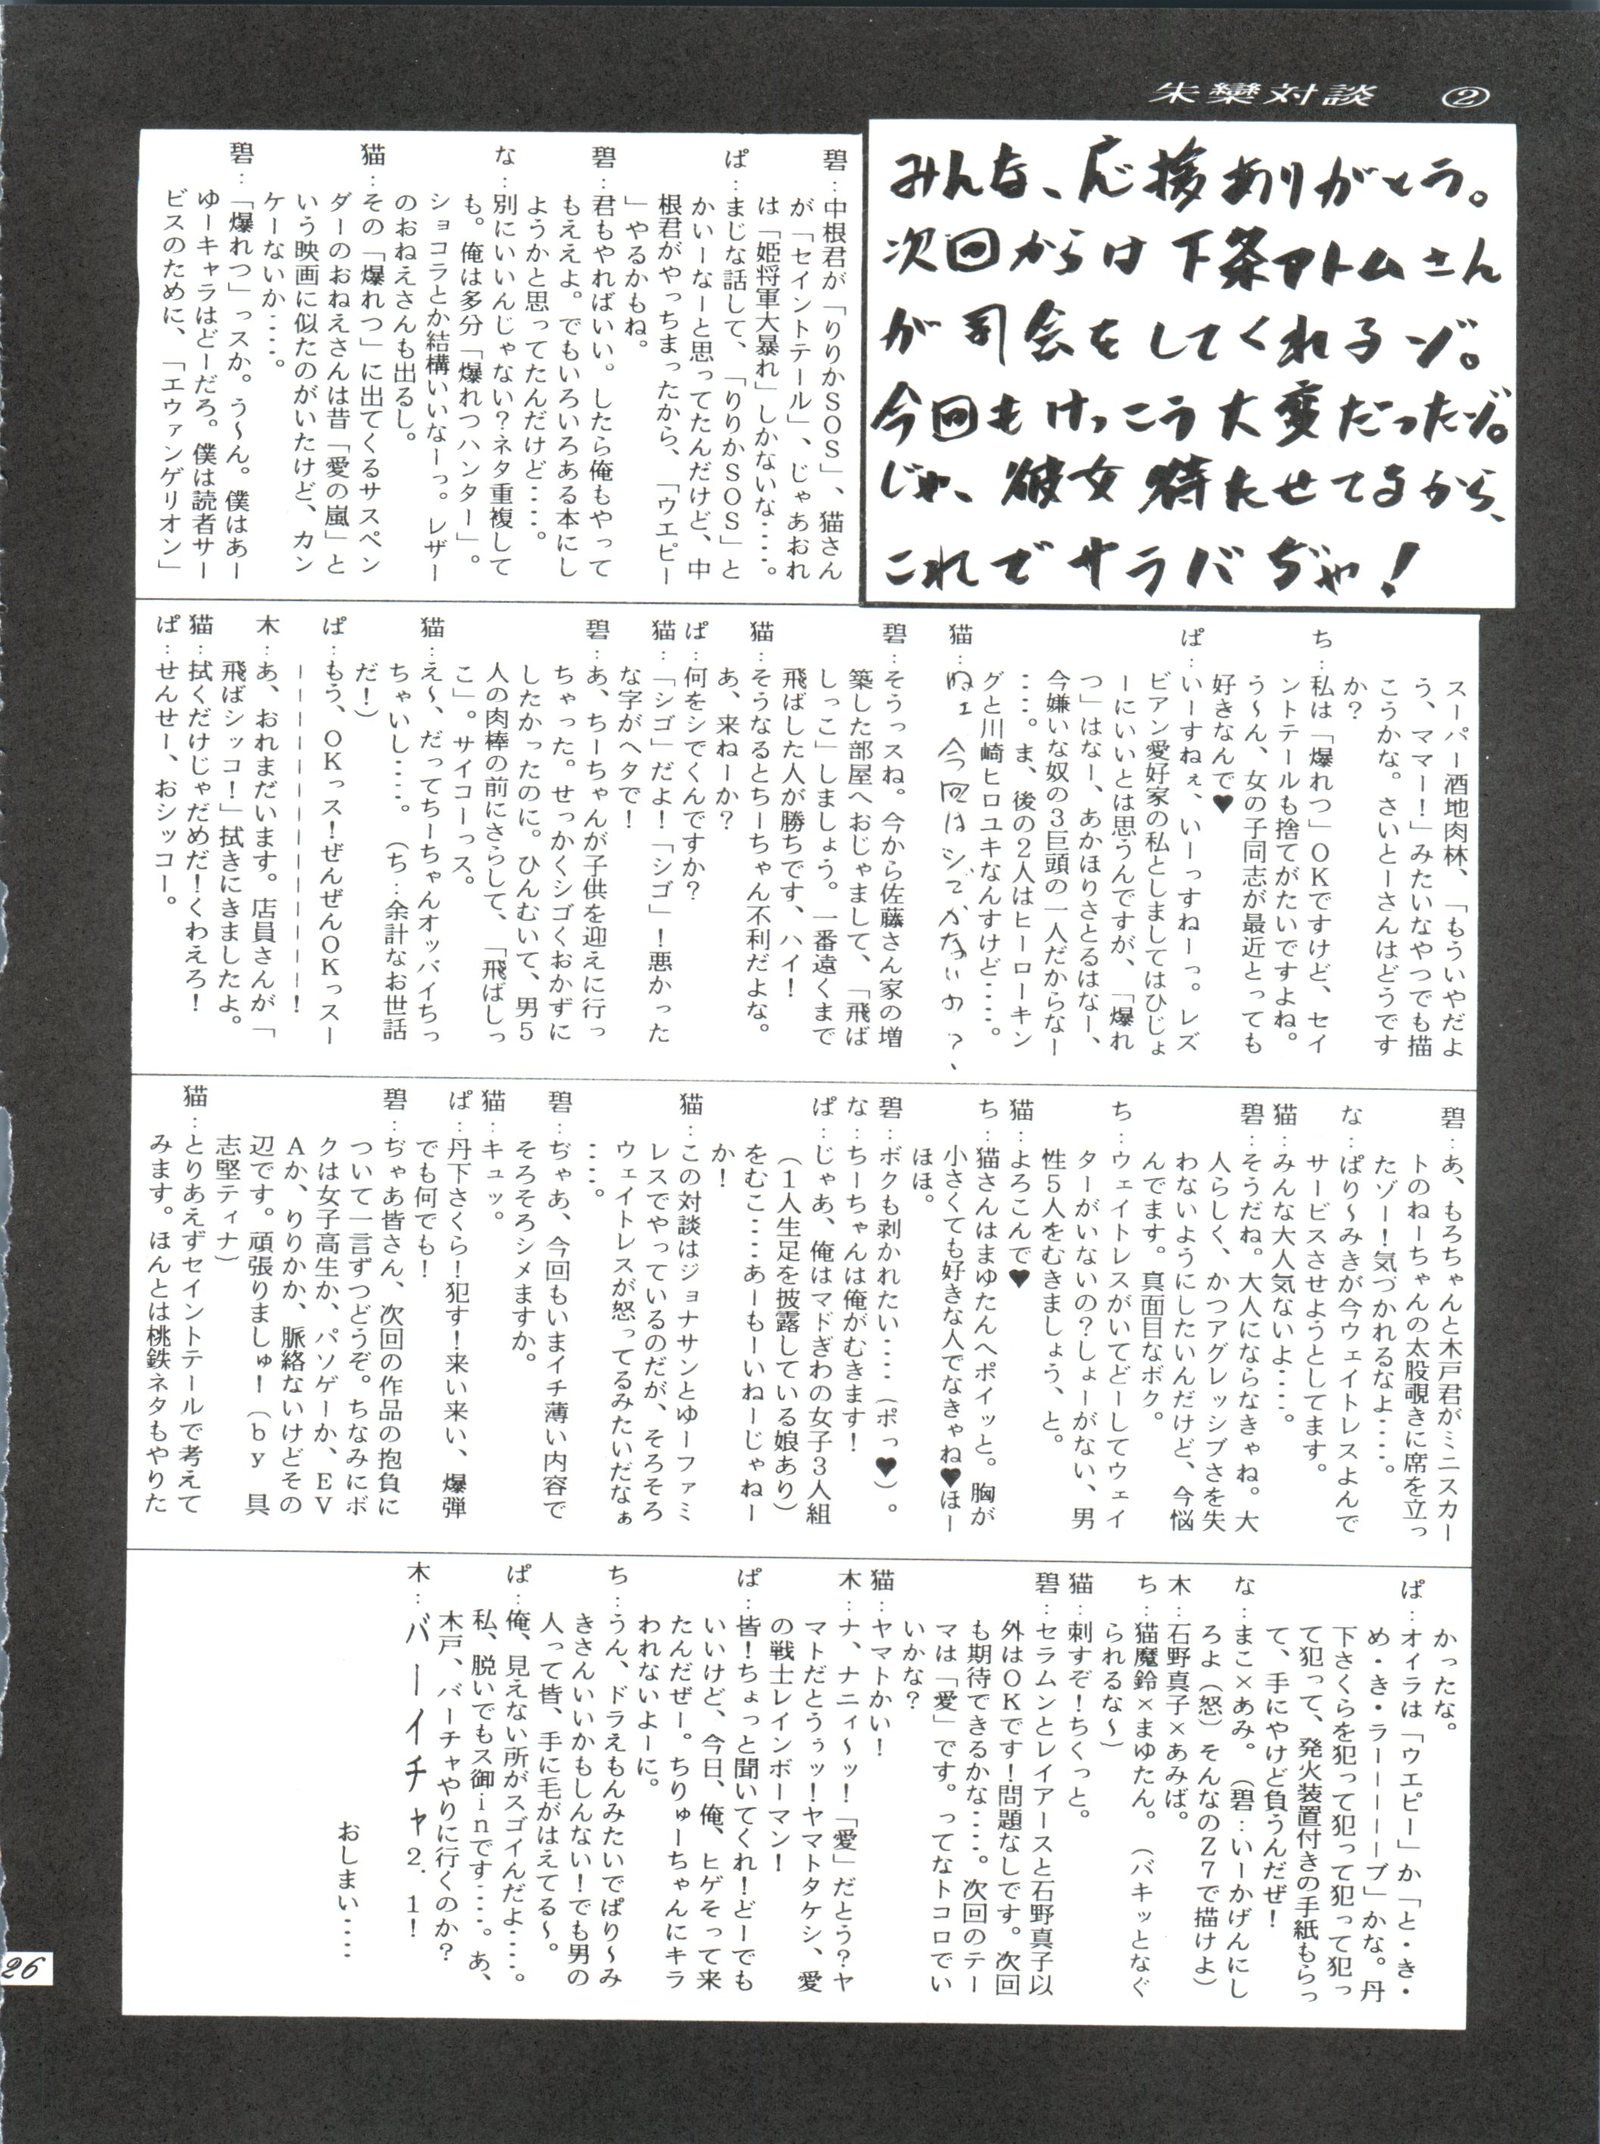 朱欒対談 ②
みんな、応援ありがとう。
次回からは下条アトムさん
が司会をしてくれるゾ。
今回もけっこう大変だったゾ。
じゃ、彼女待たせてるから、
これでサラバぢゃ！
碧：中根君が「りりかSOS」、猫さん
が「セイントテール」、じゃあおれ
は「姫将軍大暴れ」しかないな‥‥。
ぱ：まじな話して、「りりかSOS」と
かいーなーと思ってたんだけど、中
根君がやっちまったから、「ウエピー
」やるかもね。
碧：君もやればいい。したら俺もやって
もええよ。でもいろいろある本にし
ようかと思ってたんだけど‥‥。
な：別にいいんじゃない？ネタ重複して
も。俺は多分「爆れつハンター」。
ショコラとか結構いいなーっ。レザー
のおねえさんも出るし。
猫：その「爆れつ」に出てくるサスペン
ダーのおねえさんは昔「愛の嵐」と
いう映画に似たのがいたけど、カン
ケーないか‥‥。
碧：「爆れつ」っスか。う～ん。僕はあー
ゆーキャラはどーだろ。僕は読者サー
ビスのために、「エヴァンゲリオン」
スーパー酒地肉林、「もういやだよ
う、ママー！」みたいなやつでも描
こうかな。さいとーさんはどうです
か？
ち：私は「爆れつ」OKですけど、セイ
ントテールも捨てがたいですよね。
う～ん、女の子同志が最近とっても
好きなんで♥
ぱ：いーすねぇ、いーっすねーっ。レズ
ビアン愛好家の私としましてはひじょ
ーにいいとは思うんですが、「爆れ
つ」はなー、あかほりさとるはなー、
今嫌いな奴の3巨頭の一人だからなー
‥‥。ま、後の2人はヒーローキン
グと川崎ヒロユキなんすけど‥‥。
猫：ねェ今回はシゴかないの？、
碧：そうっスね。今から佐藤さん家の増
築した部屋へおじゃまして、「飛ば
しっこ」しましょう。一番遠くまで
飛ばした人が勝ちです、ハイ！
猫：そうなるとちーちゃん不利だよな。
あ、来ねーか？
ぱ：何をシでくんですか？
猫：「シゴ」だよ！「シゴ」！悪かった
な字がヘタで！
碧：あ、ちーちゃんが子供を迎えに行っ
ちゃった。せっかくシゴくおかずに
したかったのに。ひんむいて、男5
人の肉棒の前にさらして、「飛ばしっ
こ」。サイコーっス。
猫：え～、だってちーちゃんオッパイちっ
ちゃいし‥‥。（ち：余計なお世話
だ！）
ぱ：もう、OKっス！ぜんぜんOKっスー
ーーーーーーーーーーー！
木：あ、おれまだいます。店員さんが「
飛ばシッコ！」拭きにきましたよ。
猫：拭くだけじゃだめだ！くわえろ！
ぱ：せんせー、おシッコー。
碧：あ、もろちゃんと木戸君がミニスカー
トのねーちゃんの太股覗きに席を立っ
たゾー！気づかれるなよ‥‥。
な：ぱり～みきが今ウェイトレスよんで
サービスさせようとしてます。
猫：みんな大人気ないよ‥‥。
碧：そうだね。大人にならなきゃね。大
人らしく、かつアグレッシブさを失
わないようにしたいんだけど、今悩
んでます。真面目なボク。
ち：ウェイトレスがいてどーしてウェイ
ターがいないの？しょーがない、男
性5人をむきましょう、と。
猫：よろこんで♥
ち：猫さんはまゆたんへポイッと。胸が
小さくても好きな人でなきゃね♥ほー
ほほ。
碧：ボクも剥かれたい‥‥（ポっ♥）。
な：ちーちゃんは俺がむきます！
ぱ：じゃあ、俺はマドぎわの女子3人組
（1人生足を披露している娘あり）
をむこ‥‥あーもーいねーじゃねー
か！
猫：この対談はジョナサンとゆーファミ
レスでやっているのだが、そろそろ
ウェイトレスが怒ってるみたいだなぁ
‥‥。
碧：ぢゃあ、今回もいまイチ薄い内容で
そろそろシメますか。
猫：キュッ。
ぱ：丹下さくら！犯す！来い来い、爆弾
でも何でも！
碧：ぢゃあ皆さん、次回の作品の抱負に
ついて一言ずつどうぞ。ちなみにボ
クは女子高生か、パソゲーか、EV
Aか、りりかか、脈絡ないけどその
辺です。頑張りましゅ！（by 具
志堅ティナ）
猫：とりあえずセイントテールで考えて
みます。ほんとは桃鉄ネタもやりた
かったな。
ぱ：オイラは「ウエピー」か「と・き・
め・き・ラーーーーブ」かな。丹
下さくらを犯って犯って犯って犯っ
て犯って、発火装置付きの手紙もらっ
て、手にやけど負うんだぜ！
な：まこ×あみ。（碧：いーかげんにし
ろよ（怒）そんなのZ7で描けよ）
木：石野真子×あみば。
ち：猫魔鈴×まゆたん。（バキッとなぐ
られるな～）
猫：刺すぞ！ちくっと。
碧：セラムンとレイアースと石野真子以
外はOKです！問題なしです。次回
も期待できるかな‥‥。次回のテー
マは「愛」です。ってなトコロでい
いかな？
猫：ヤマトかい！
木：ナ、ナニィ～ッ！「愛」だとう？ヤ
マトだとうぅッ！ヤマトタケシ、愛
の戦士レインボーマン！
ぱ：皆！ちょっと聞いてくれ！どーでも
いいけど、今日、俺、ヒゲそって来
たんだぜー。ちりゅーちゃんにキラ
われないよーに。
ち：うん、ドラえもんみたいでぱり～み
きさんいいかもしんない！でも男の
人って皆、手に毛がはえてる～。
ぱ：俺、見えない所がスゴイんだよ‥‥。
私、脱いでもス御inです‥‥。あ、
木戸、バーチャやりに行くのか？
木：バーイチャ2．1！
おしまい‥‥
26